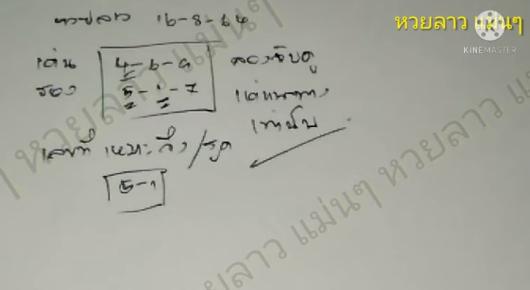 หวยลาว แม่นๆ
KINEMASTER
หวยลาว 16-8-64
เด่น 4-6-9 ลองจับดู
รอง 5-1-7 แค่แนวทาง
เท่านั้น
เลขที่ เหมาะ วิ่ง/รูด
5-1
หวยลาว แม่นๆ หวยลาว แม่นๆ